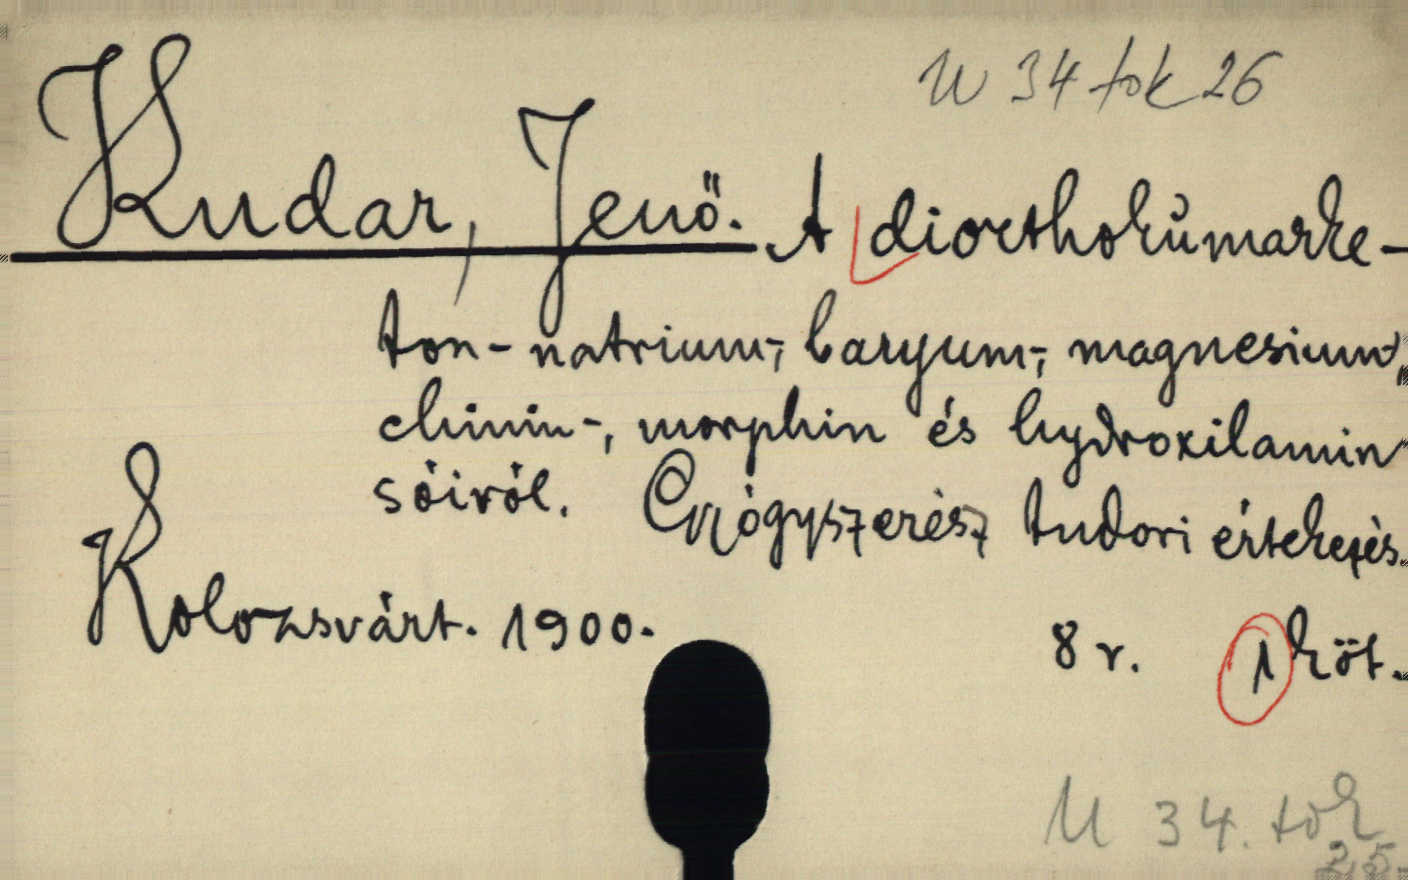 U 34 tok 26
Kudar, Jenő. A diorthokúmarke-
ton-natrium-, baryum-, magnesium,
chinin-, morphin és hydroxilamin
sóiról. Gyógyszerész tudori értekezés.
Kolozsvárt. 1900.
8 r. 1 köt.
U 34. tok
25